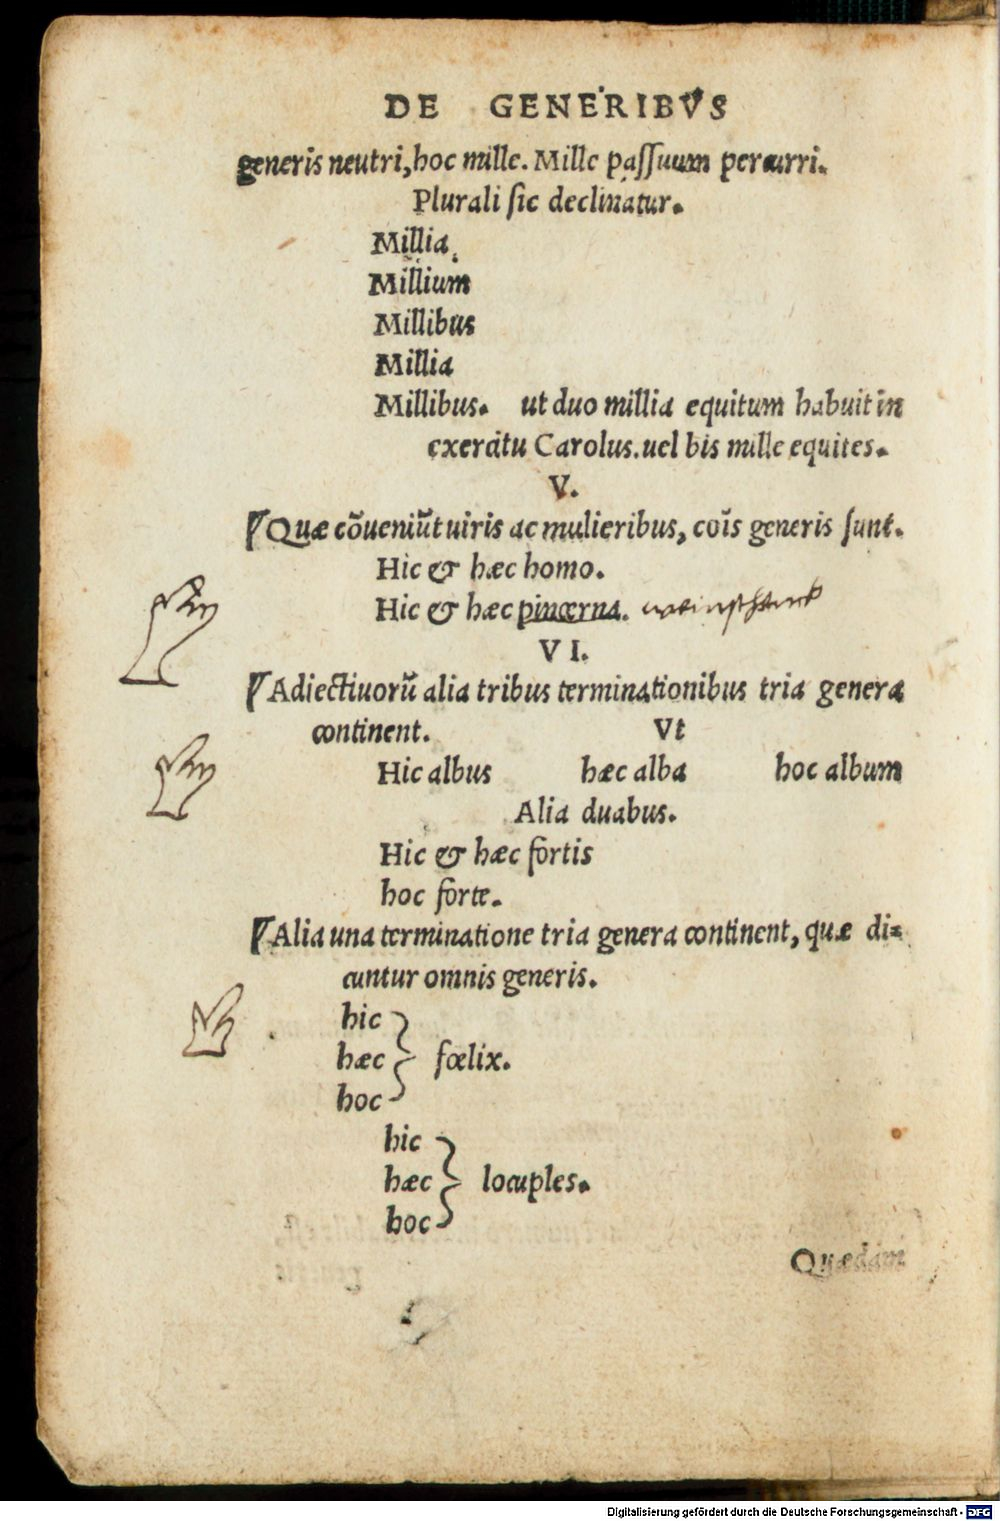 DE GENERIBVS
generis neutri, hoc mille. Mille paſſuum percurri.
Plurali ſic declinatur.
Millia
Millium
Millibus
Millia
Millibus. ut duo millia equitum habuit in
exercitu Carolus. uel bis mille equites.
V.
¶ Quæ cõueniũt uiris ac mulieribus, cõis generis ſunt.
Hic & hæc homo.
Hic & hæc pincerna. weinschenck
VI.
¶ Adiectiuorũ alia tribus terminationibus tria genera
continent. Vt
Hic albus hæc alba hoc album
Alia duabus.
Hic & hæc fortis
hoc forte.
¶ Alia una terminatione tria genera continent, quæ di=
cuntur omnis generis.
hic
hæc } fœlix.
hoc
hic
hæc } locuples.
hoc
Quædam
Digitalisierung gefördert durch die Deutsche Forschungsgemeinschaft - DFG